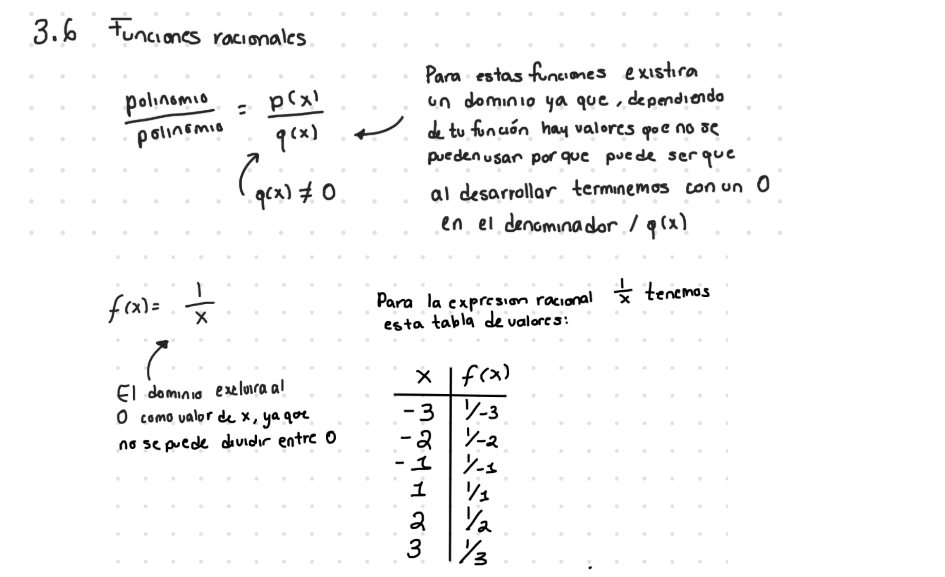 3.6 Funciones racionales
polinomio / polinomio = p(x) / q(x)
q(x) ≠ 0
Para estas funciones existira
un dominio ya que, dependiendo
de tu función hay valores que no se
pueden usar por que puede ser que
al desarrollar terminemos con un 0
en el denominador / q(x)
f(x)= 1/x
El dominio excluira al
0 como valor de x, ya que
no se puede dividir entre 0
Para la expresion racional 1/x tenemos
esta tabla de valores:
x | f(x)
-3 | 1/-3
-2 | 1/-2
-1 | 1/-1
1 | 1/1
2 | 1/2
3 | 1/3